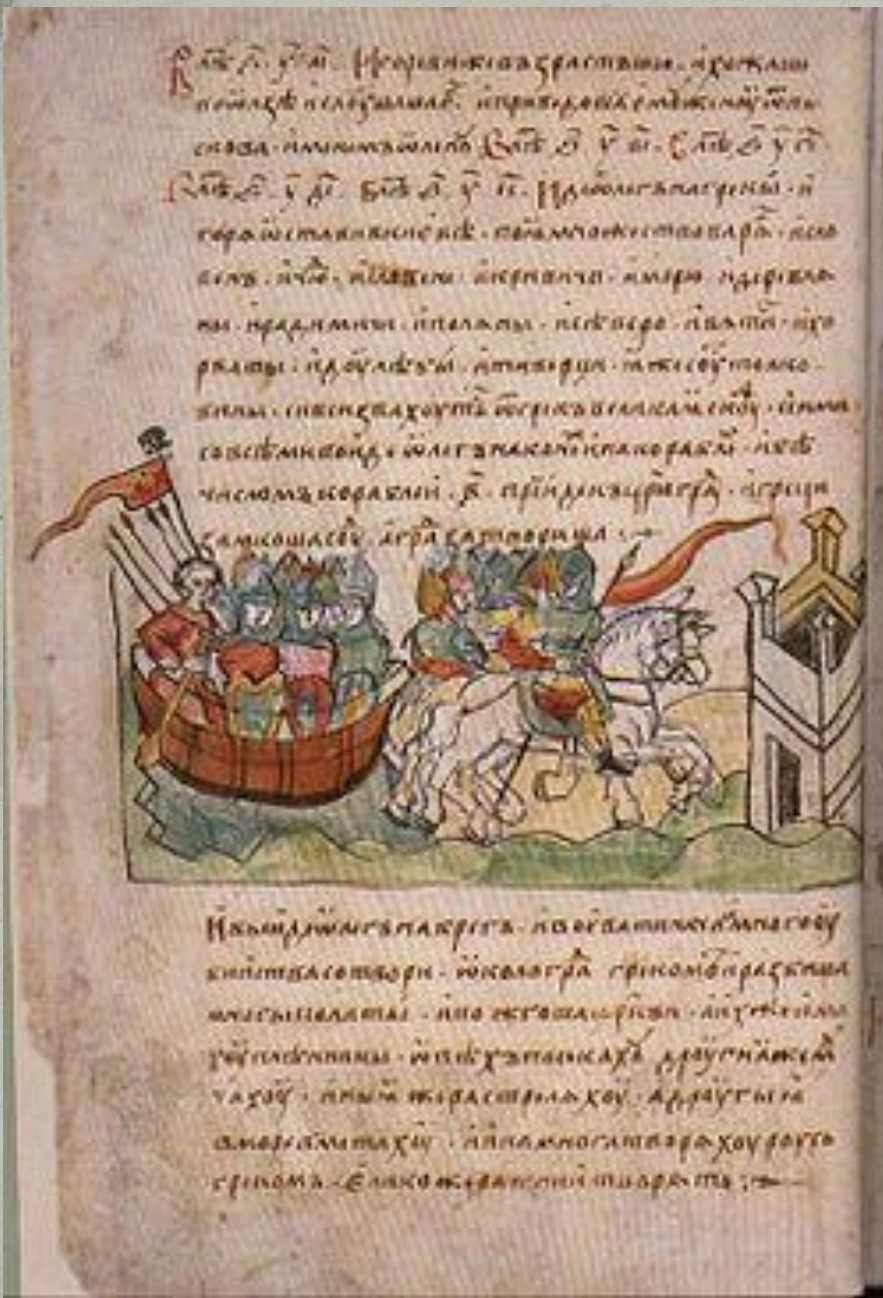 Игореви же възрастъшю. и хожаше
по ѡлзѣ и слоушаше. и приведоша емоу женоу ѿ пь
скова. именемъ ѡленоу В лѣ ѕ҃ у҃ вı҃. В лѣ ѕ҃ у҃ гı҃.
В лѣ ѕ҃. у҃ дı҃. В лѣ ѕ҃. у҃ еı҃. Иде ѡлегъ на грекы. и
горѧ ѡставив киевѣ. поѧ множество варѧ. и сло
венъ. и чю. и словени. и кривичи. и мерю. и деревлѧ
ны. и радимичи. и полѧны. и сѣверо. и вѧтичи. и хо
рваты. и доулѣбы. и тиверци. иже соуть толко
вины. си вси звахоуть ѿ грекъ великаѧ скоу. и с ими
со всѣми поиде ѡлегъ на коне и на корабле. и бѣ
числомъ кораблеи. в҃. прииде к цр҃югра. и греци
замкоша соу. а гра затвориша :
И вылѣзе ѡлегъ на брегъ. и воевати нача. и много оу
биства сотвори. ѡколо гра грекомъ. и разбиша
многы полаты. и пожгоша цр҃кви. а ихже има
хоу плѣнникы. ѡвѣхъ посекахоу дроугиѧ же моу
чахоу. иныѧ же растрелѧхоу. а дроугыѧ
в море вметахоу. и ина многа творѧхоу роусь
грекомъ. елико же ратнии творѧть :